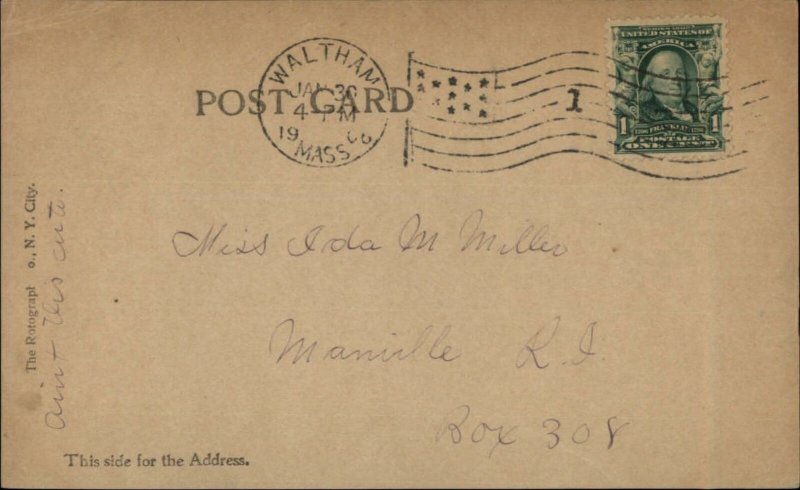 POST CARD
WALTHAM
JAN 30
4 - PM
1906
MASS
1
SERIES 1902
UNITED STATES OF
AMERICA
1 FRANKLIN 1
POSTAGE
ONE CENT
Miss Ida M Miller
Manville R. I.
Box 308
The Rotograph Co., N. Y. City.
aint this cute.
This side for the Address.